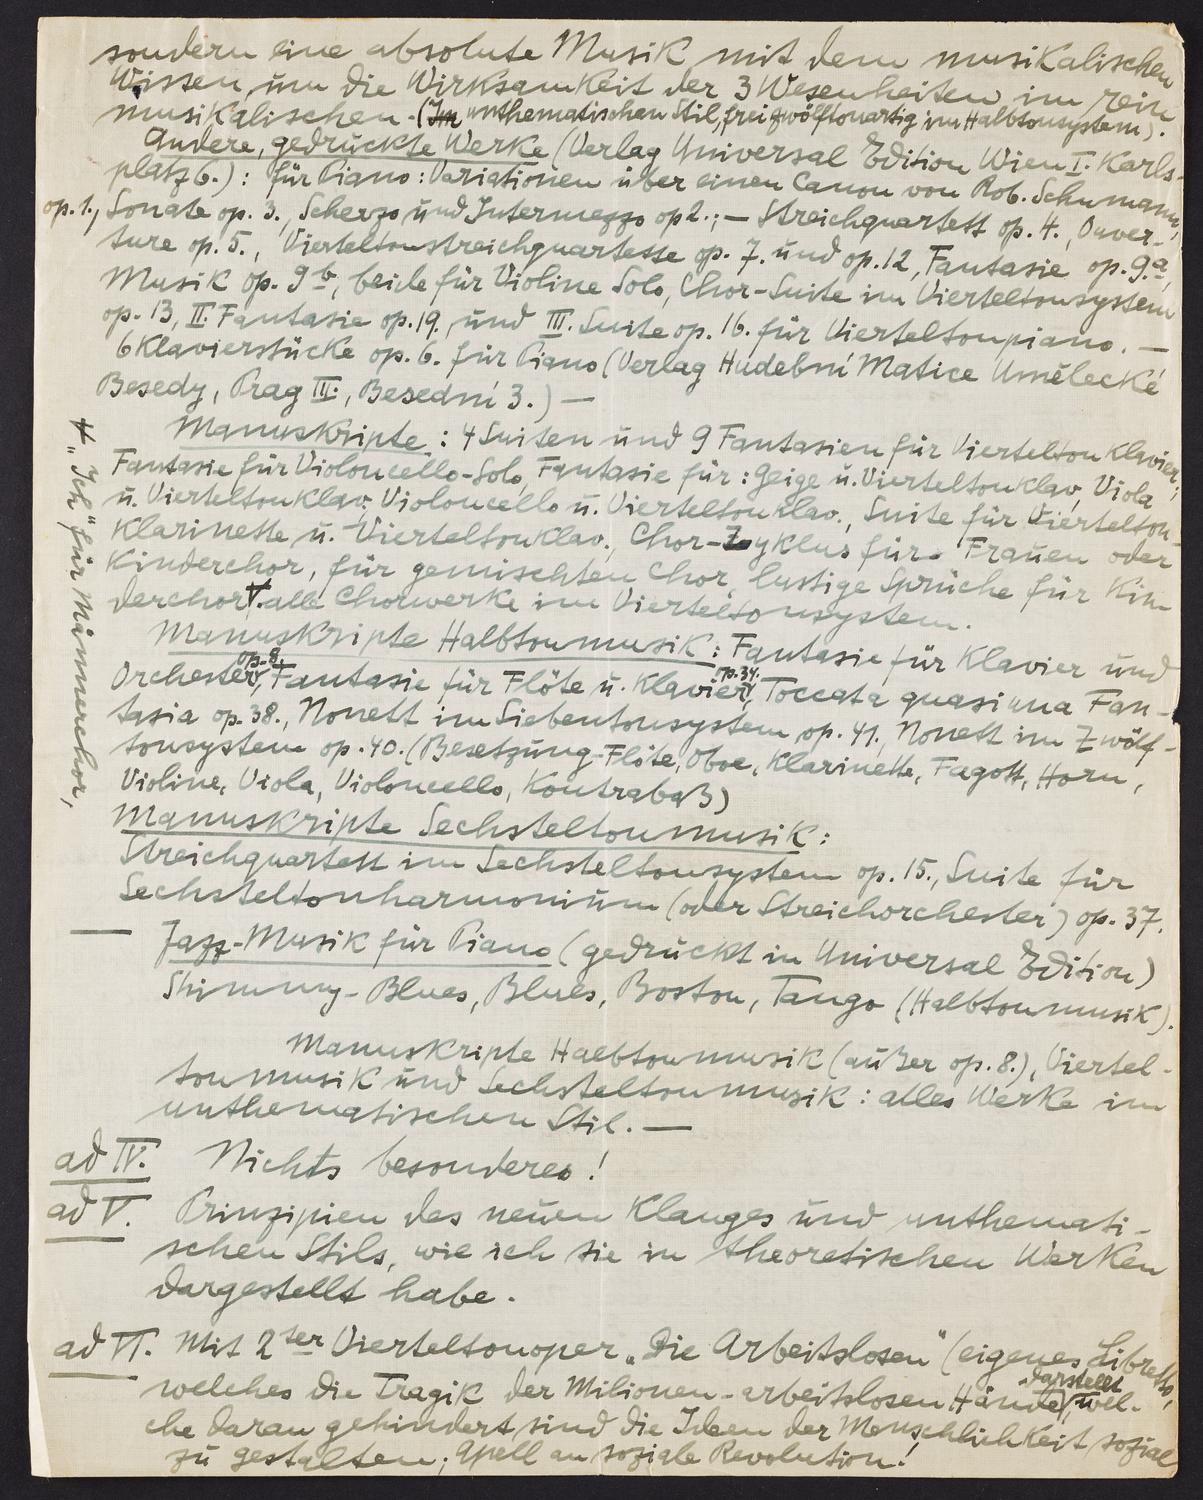 sondern eine absolute Musik mit dem musikalischen
Wissen, um die Wirksamkeit der 3 Wesenheiten im rein
musikalischen. (Im unthematischen Stil, frei zwölftonartig im Halbtonsystem).
Andere, gedruckte Werke (Verlag Universal Edition Wien I. Karls-
platz 6.): für Piano: Variationen über einen Canon von Rob. Schumann,
op. 1., Sonate op. 3., Scherzo und Intermezzo op 2.; — Streichquartett op. 4., Ouver-
ture op. 5., Vierteltonstreichquartette op. 7. und op. 12, Fantasie op. 9.a,
Musik op. 9 b, beide für Violine Solo, Chor-Suite im Vierteltonsystem
op. 13, II. Fantasie op. 19. und III. Suite op. 16. für Vierteltonpiano. —
6 Klavierstücke op. 6. für Piano (Verlag Hudební Matice Umělecké
Besedy, Prag III., Besední 3.) —
Manuskripte: 4 Suiten und 9 Fantasien für Viertelton Klavier;
Fantasie für Violoncello-Solo, Fantasie für: Geige u. Viertelton Klav, Viola
u. Viertelton Klav; Violoncello u. Viertelton Klav., Suite für Viertelton-
Klarinette u. Viertelton Klav., Chor-Zyklus für Frauen oder
Kinderchor, für gemischten Chor, lustige Sprüche für Kin
derchor. alle Chorwerke im Vierteltonsystem.
"Ich" für Männerchor,
Manuskripte Halbtonmusik: Fantasie für Klavier und
Orchester op. 8., Fantasie für Flöte u. Klavier op. 34., Toccata quasi una Fan-
tasia op. 38., Nonett im Siebentonsystem op. 41., Nonett im Zwölf-
tonsystem op. 40. (Besetzung Flöte, Oboe, Klarinette, Fagott, Horn,
Violine, Viola, Violoncello, Kontrabaß)
Manuskripte Sechsteltonmusik:
Streichquartett im Sechsteltonsystem op. 15., Suite für
Sechsteltonharmonium (oder Streichorchester) op. 37.
— Jazz-Musik für Piano (gedruckt in Universal Edition)
Shimmy-Blues, Blues, Boston, Tango (Halbtonmusik).
Manuskripte Halbtonmusik (außer op. 8.), Viertel-
tonmusik und Sechsteltonmusik: alles Werke im
unthematischen Stil. —
ad IV. Nichts besonderes!
ad V. Prinzipien des neuen Klanges und unthemati-
schen Stils, wie ich sie in theoretischen Werken
dargestellt habe.
ad VI. Mit 2ter Vierteltonoper „Die Arbeitslosen" (eigenes Libretto,
welches die Tragik der Milionen-arbeitslosen Hände darstellt, wel-
che daran gehindert sind die Ideen der Menschlichkeit sozial
zu gestalten; Apell an soziale Revolution!